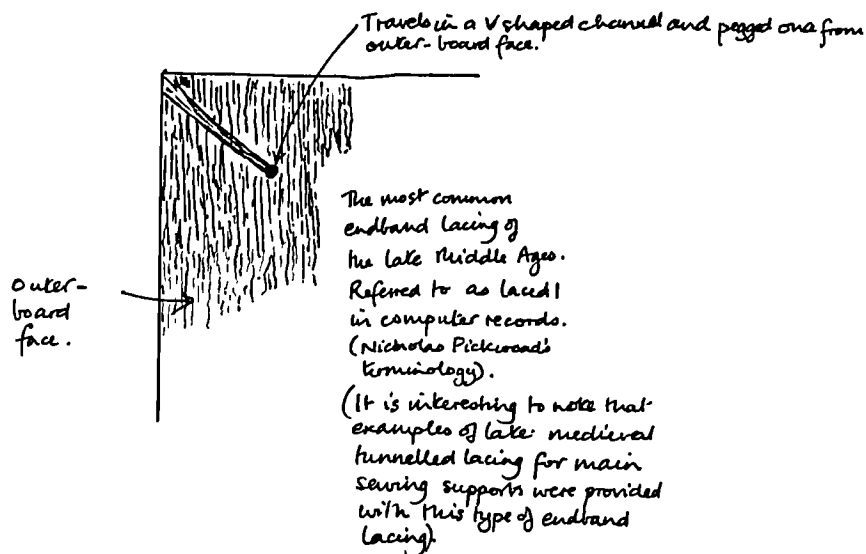 Travels in a V shaped channel and pegged once from
outer-board face.
The most common
endband lacing of
the late Middle Ages.
Referred to as laced 1
in computer records.
(Nicholas Pickwoad's
terminology).
(It is interesting to note that
examples of late medieval
tunnelled lacing for main
sewing supports were provided
with this type of endband
lacing).
Outer-
board
face.